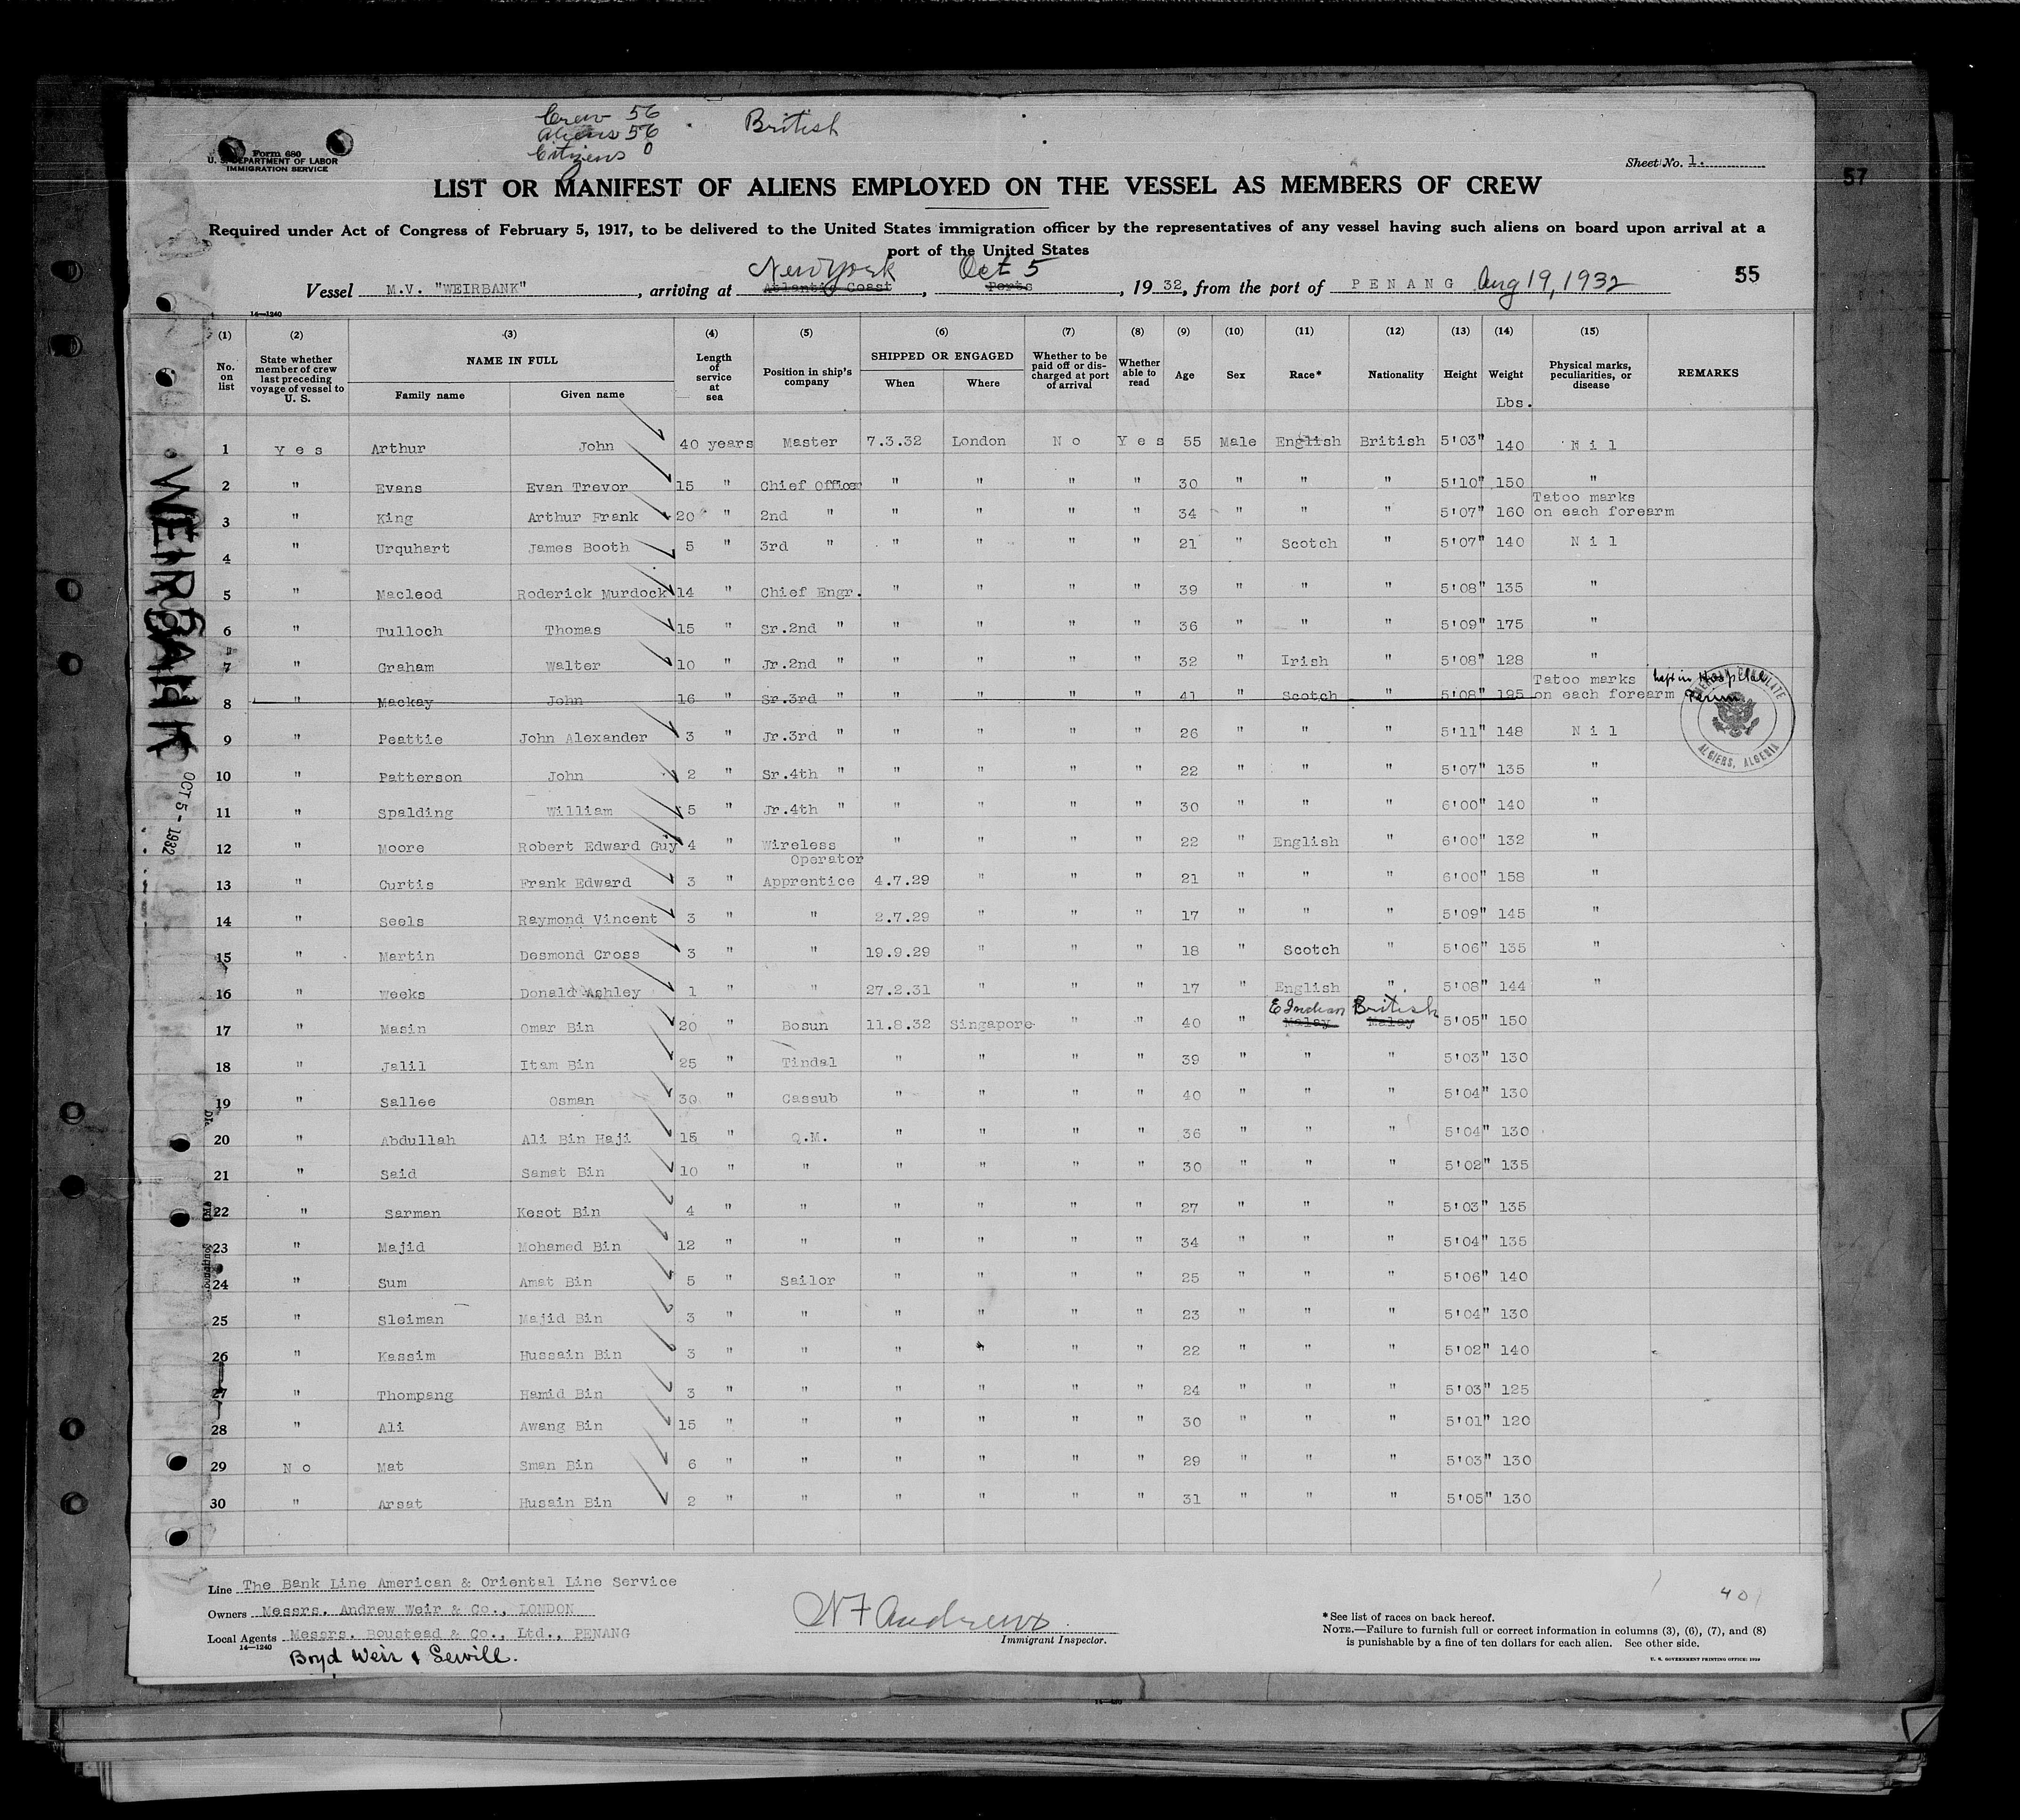 Crew 56
Aliens 56
Citizens 0
British
Form 680
U. S. DEPARTMENT OF LABOR
IMMIGRATION SERVICE
Sheet No. 1.
57
LIST OR MANIFEST OF ALIENS EMPLOYED ON THE VESSEL AS MEMBERS OF CREW
Required under Act of Congress of February 5, 1917, to be delivered to the United States immigration officer by the representatives of any vessel having such aliens on board upon arrival at a
port of the United States
New York Oct 5
Vessel M.V. "WEIRBANK", arriving at Atlantic Coast, Ports, 19 32, from the port of PENANG Aug 19, 1932
55
14—1240
(1) (2) (3) (4) (5) (6) (7) (8) (9) (10) (11) (12) (13) (14) (15)
No. on list State whether member of crew last preceding voyage of vessel to U. S. NAME IN FULL Family name Given name Length of service at sea Position in ship's company SHIPPED OR ENGAGED When Where Whether to be paid off or discharged at port of arrival Whether able to read Age Sex Race* Nationality Height Weight Lbs. Physical marks, peculiarities, or disease REMARKS
1 Yes Arthur John 40 years Master 7.3.32 London No Yes 55 Male English British 5'03" 140 Nil
2 " Evans Evan Trevor 15 " Chief Officer " " " " 30 " " " 5'10" 150 "
3 " King Arthur Frank 20 " 2nd " " " " " 34 " " " 5'07" 160 Tatoo marks on each forearm
4 " Urquhart James Booth 5 " 3rd " " " " " 21 " Scotch " 5'07" 140 Nil
5 " Macleod Roderick Murdock 14 " Chief Engr. " " " " 39 " " " 5'08" 135 "
6 " Tulloch Thomas 15 " Sr.2nd " " " " " 36 " " " 5'09" 175 "
7 " Graham Walter 10 " Jr.2nd " " " " " 32 " Irish " 5'08" 128 "
8 " Mackay John 16 " Sr.3rd " " " " " 41 " Scotch " 5'08" 195 Tatoo marks on each forearm left in Hospital
AMERICAN CONSULATE
ALGIERS, ALGERIA
9 " Peattie John Alexander 3 " Jr.3rd " " " " " 26 " " " 5'11" 148 Nil
10 " Patterson John 2 " Sr.4th " " " " " 22 " " " 5'07" 135 "
11 " Spalding William 5 " Jr.4th " " " " " 30 " " " 6'00" 140 "
12 " Moore Robert Edward Guy 4 " Wireless Operator " " " " 22 " English " 6'00" 132 "
13 " Curtis Frank Edward 3 " Apprentice 4.7.29 " " " 21 " " " 6'00" 158 "
14 " Seels Raymond Vincent 3 " " 2.7.29 " " " 17 " " " 5'09" 145 "
15 " Martin Desmond Cross 3 " " 19.9.29 " " " 18 " Scotch " 5'06" 135 "
16 " Weeks Donald Ashley 1 " " 27.2.31 " " " 17 " English " 5'08" 144 "
E Indian British
17 " Masin Omar Bin 20 " Bosun 11.8.32 Singapore " " 40 " Malay Malay 5'05" 150
18 " Jalil Itam Bin 25 " Tindal " " " " 39 " " " 5'03" 130
19 " Sallee Osman 30 " Cassub " " " " 40 " " " 5'04" 130
20 " Abdullah Ali Bin Haji 15 " Q.M. " " " " 36 " " " 5'04" 130
21 " Said Samat Bin 10 " " " " " " 30 " " " 5'02" 135
22 " Sarman Kesot Bin 4 " " " " " " 27 " " " 5'03" 135
23 " Majid Mohamed Bin 12 " " " " " " 34 " " " 5'04" 135
24 " Sum Amat Bin 5 " Sailor " " " " 25 " " " 5'06" 140
25 " Sleiman Majid Bin 3 " " " " " " 23 " " " 5'04" 130
26 " Kassim Hussain Bin 3 " " " " " " 22 " " " 5'02" 140
27 " Thompang Hamid Bin 3 " " " " " " 24 " " " 5'03" 125
28 " Ali Awang Bin 15 " " " " " " 30 " " " 5'01" 120
29 No Mat Sman Bin 6 " " " " " " 29 " " " 5'03" 130
30 " Arsat Husain Bin 2 " " " " " " 31 " " " 5'05" 130
WEIRBANK
OCT 5 - 1932
Line The Bank Line American & Oriental Line Service
Owners Messrs. Andrew Weir & Co., LONDON
Local Agents Messrs. Boustead & Co., Ltd., PENANG
14—1240
Boyd Weir & Sewill.
N F Andrews
Immigrant Inspector.
40
*See list of races on back hereof.
NOTE.—Failure to furnish full or correct information in columns (3), (6), (7), and (8)
is punishable by a fine of ten dollars for each alien. See other side.
U. S. GOVERNMENT PRINTING OFFICE: 1929